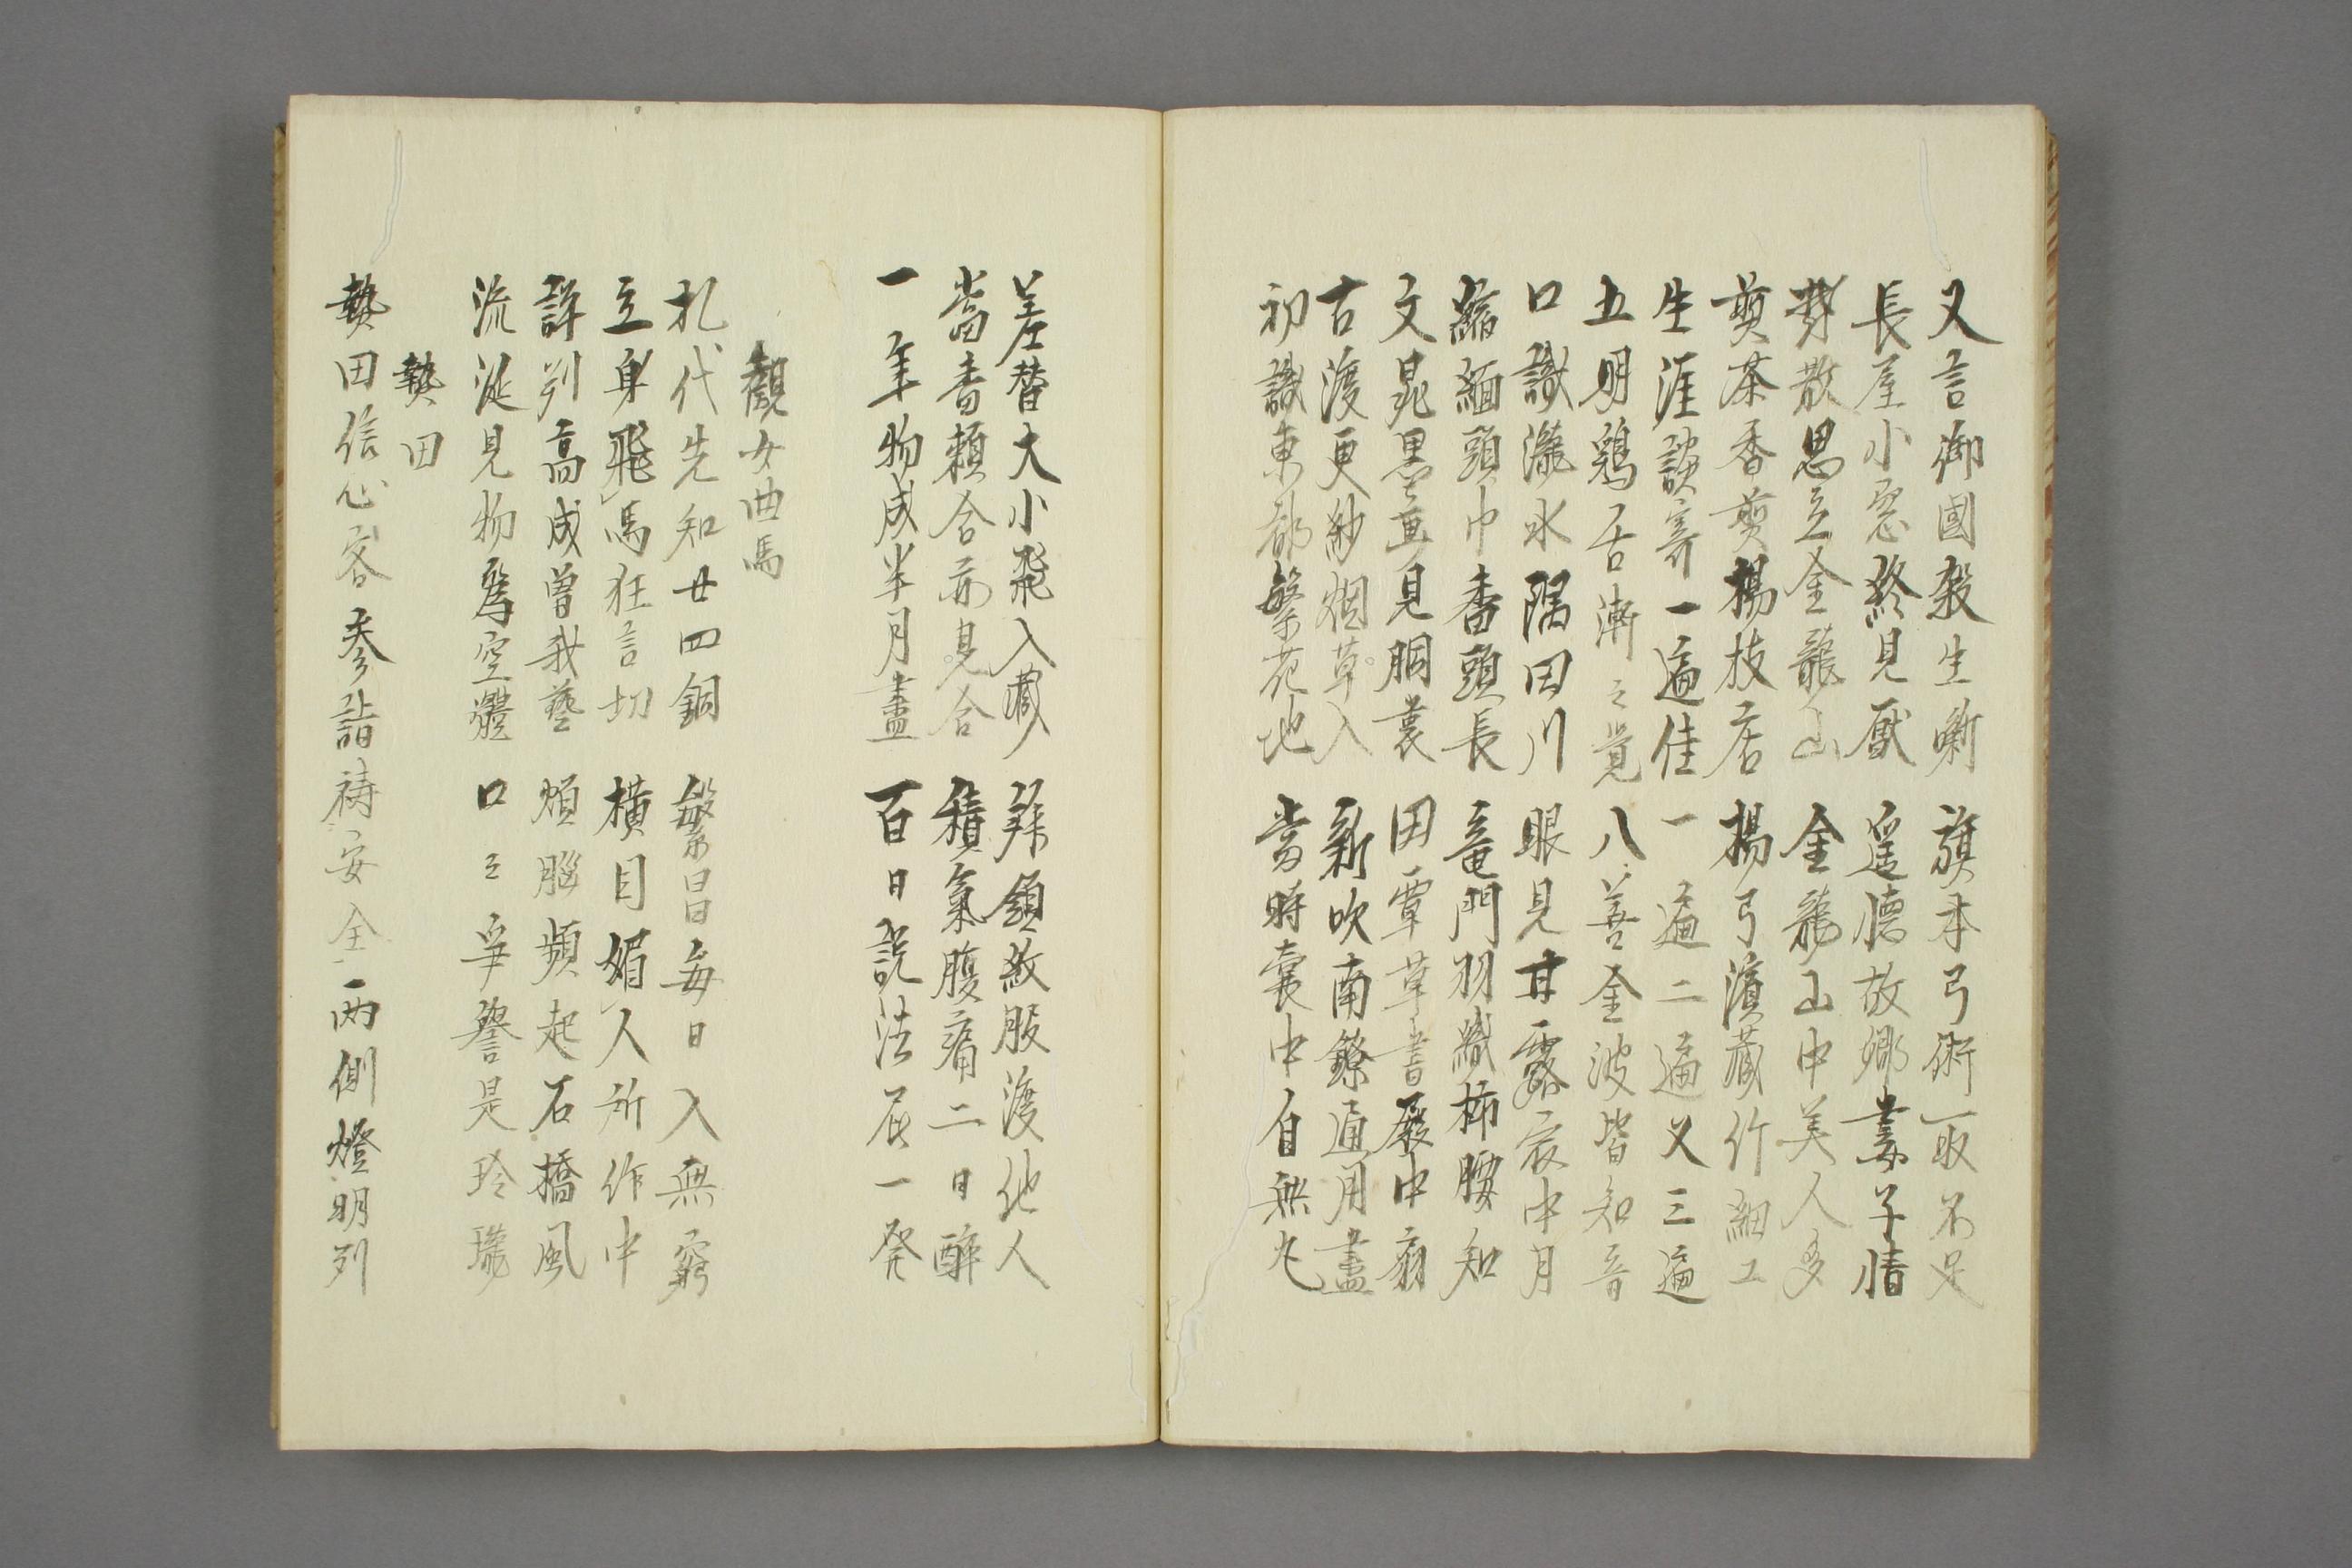 又言御國殺生斬 旗本弓術一取不足
長屋小窓終見厭 遥聴故郷妻子情
散思立金龍山 金龍山中美人多
煎茶香煎楊枝店 楊弓濱蔵竹細工
生涯談寄一遍佳 一遍二遍又三遍
五明鶏舌漸々覚 八善金波皆知音
口識瀧水隅田川 眼見甘露宸中月
縮緬頭巾番頭長 竜門羽織柿腰知
文晁墨画見胴裏 田覃草書殿中扇
古渡更紗烟草入 新吹南鐐通用盡
初識東都繁花地 當時嚢中自無丸
差替大小飛入藏 拜領紋服渡他人
當番頼合亦見合 積氣腹痛二日醉
一年物成半月盡 百日説法屁一発
觀女曲馬
札代先知廿四銅 繁昌毎日入無窮
立身飛馬狂言切 横目媚人所作中
評判高成曽我藝 煩腦頻起石橋風
流涎見物爲空體 口々爭譽是玲瓏
贄田
贄田信心客 参詣祷安全 両側燈明列